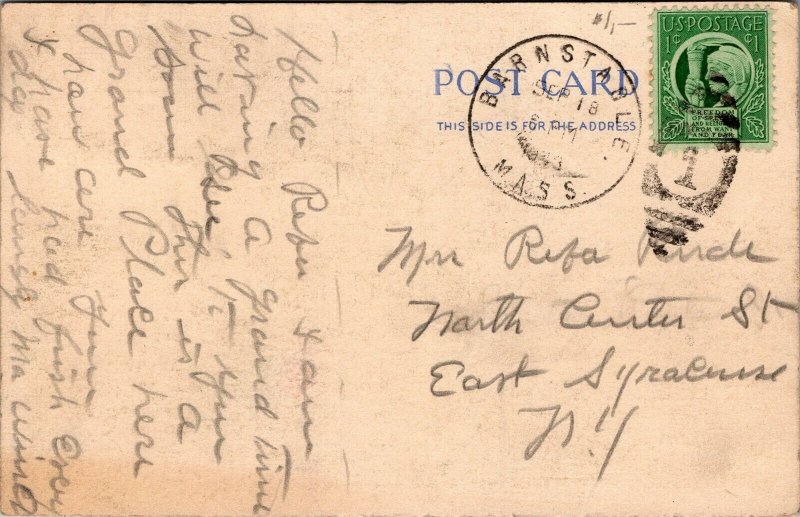 Hello Refa I am
having a grand time
Will See you
Soon this is a
Grand Place here
how are you
I have had fish every
day
POST CARD
THIS SIDE IS FOR THE ADDRESS
BARNSTABLE.
SEP 18
MASS.
U.S POSTAGE
1¢ ¢1
FREEDOM
OF SPEECH
AND RELIGION
FROM WANT
AND FEAR
1
Mrs Refa
North Center St
East Syracuse
N.Y